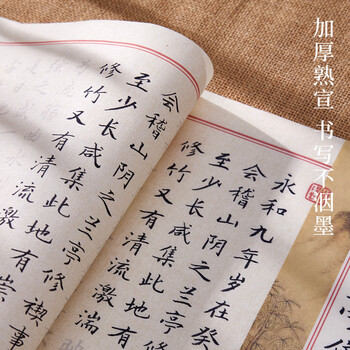 加厚熟宣 书写不洇墨
永和九年岁在癸
会稽山阴之兰亭修
至少长咸集此地有
修竹又有清流激湍
会稽山阴之兰亭修禊事
至少长咸集此地有崇
修竹又有清流激